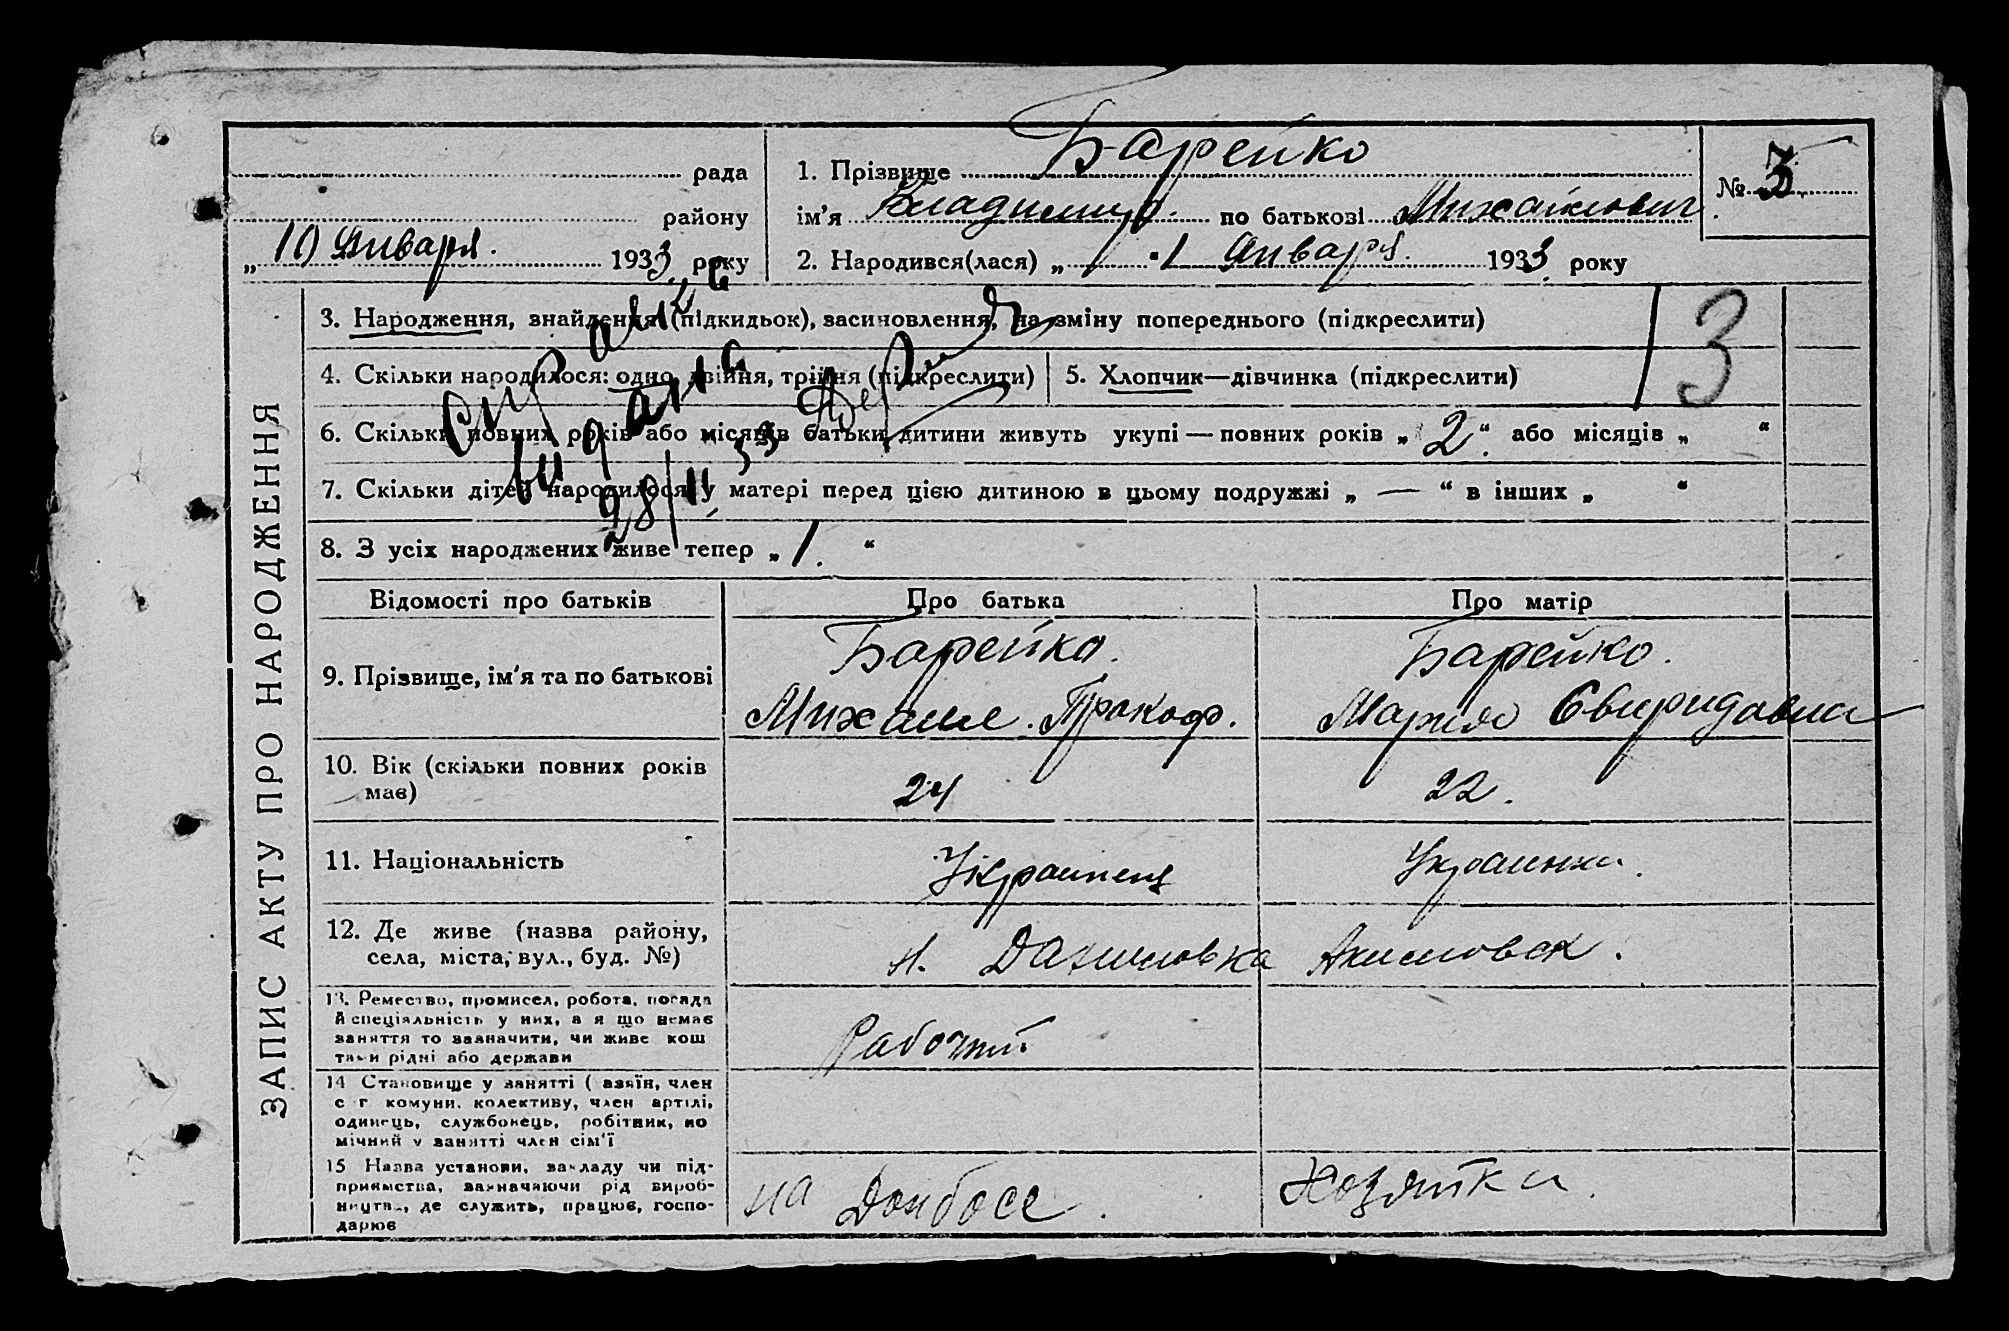 рада
району
„ 10 Января. 1933 року
1. Прізвище Барейко
ім’я Владимир. по батькові Михайлович.
2. Народився(лася) „ 1 “ Января. 1933 року
№ 3.
ЗАПИС АКТУ ПРО НАРОДЖЕННЯ
3. Народження, знайдення (підкидьок), засиновлення, на зміну попереднього (підкреслити)
4. Скільки народилося: одно, двійня, трійня (підкреслити)
5. Хлопчик—дівчинка (підкреслити)
13
6. Скільки повних років або місяців батьки дитини живуть укупі — повних років „ 2 “. або місяців „ “
7. Скільки дітей народилося у матері перед цією дитиною в цьому подружжі „ — “ в інших „ “
8. З усіх народжених живе тепер „ 1. “
видана
28/II 33
Відомості про батьків
Про батька
Про матір
9. Прізвище, ім’я та по батькові
Барейко.
Михаил. Прокоф.
Барейко.
Мария Свиридовна
10. Вік (скільки повних років
має)
24
22.
11. Національність
Украинец
Украинка.
12. Де живе (назва району,
села, міста, вул., буд. №)
Акимовск.
13. Ремество, промисел, робота, посада
й спеціяльність у них, а я що немає
заняття то зазначити, чи живе кош
тами рідні або держави
Рабочий
14 Становище у занятті ( азяїн, член
с г комуни, колективу, член артілі,
одинець, службовець, робітник, по
мічний у занятті член сім’ї
15 Назва установи, закладу чи під-
приємства, зазначаючи рід вироб-
ництва, де служить, працює, госпо-
дарює
на Донбасе.
Хозяйка.